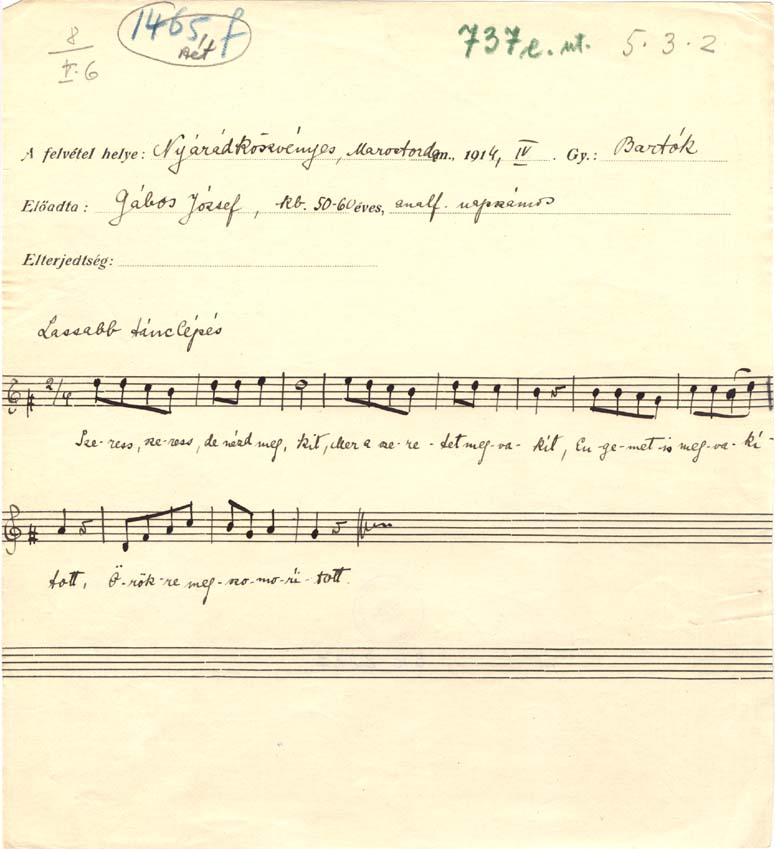 8 1465, f 737e. ut. 5. 3. 2
V. 6
A felvétel helye: Nyárádköszvényes, Marostorda m., 1914, IV. Gy.: Bartók
Előadta: Gábos József, kb. 50-60 éves, analf. napszámos
Elterjedtség:
Lassabb tánclépés
2/4
Sze-ress, sze-ress, de nézd meg, kit, Mer a sze-re-tet meg-va-kit, En-ge-met-is meg-va-kí-
tott, Ö-rök-re meg-szo-mo-rí-tott.